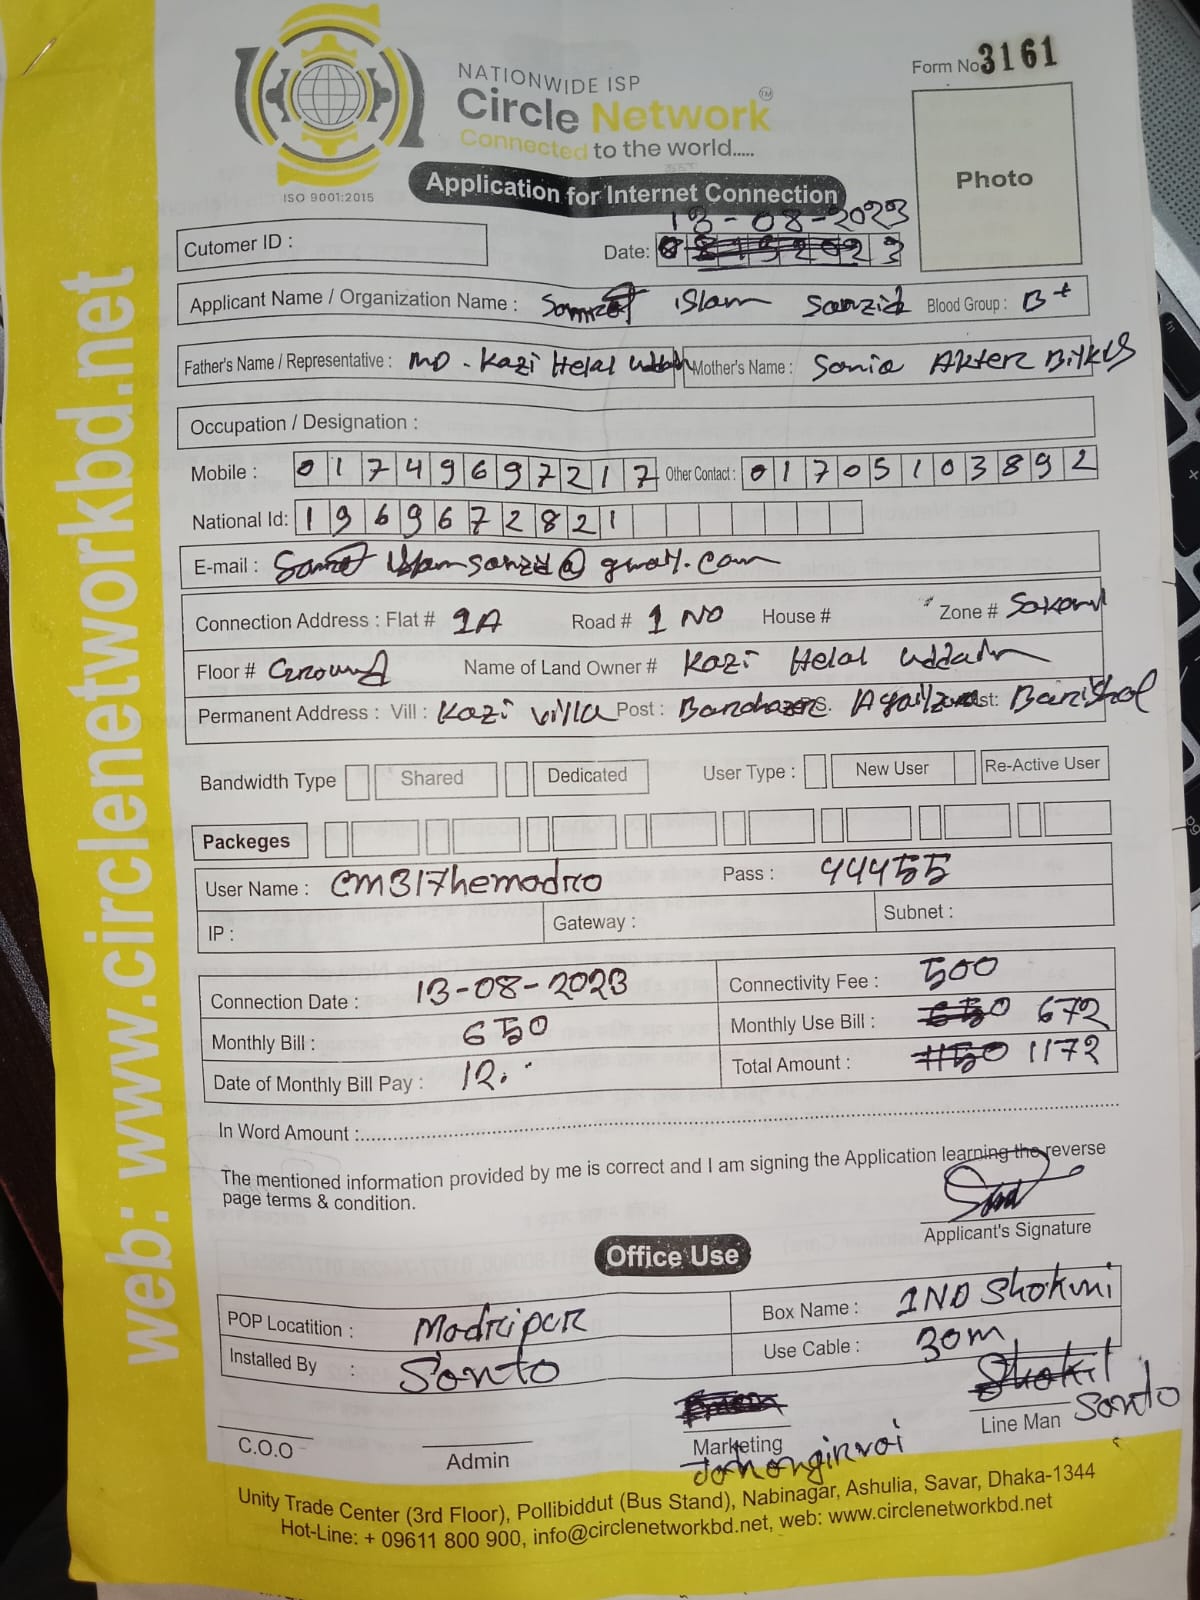 NATIONWIDE ISP
Circle Network TM
Connected to the world.....
ISO 9001:2015
Form No 3161
Photo
Application for Internet Connection
13-08-2023
Cutomer ID :
Date:
Applicant Name / Organization Name : Islam Sanzid Blood Group : B+
Father's Name / Representative : MD. Kazi Helal Uddin Mother's Name : Sonia Akter Bilkis
Occupation / Designation :
Mobile : 01749697217 Other Contact : 01705103892
National Id: 1969672821
E-mail :
Connection Address : Flat # 1A Road # 1 NO House # Zone #
Floor # Ground Name of Land Owner # Kazi Helal Uddin
Permanent Address : Vill : Kazi villa Post : Barishal
Bandwidth Type Shared Dedicated User Type : New User Re-Active User
Packeges
User Name : CM317hemadro Pass : 44455
IP : Gateway : Subnet :
Connection Date : 13-08-2023 Connectivity Fee : 500
Monthly Bill : 650 Monthly Use Bill : 650 672
Date of Monthly Bill Pay : 12. Total Amount : 1150 1172
In Word Amount :
The mentioned information provided by me is correct and I am signing the Application learning the reverse
page terms & condition.
Applicant's Signature
Office Use
POP Locatition : Madripur Box Name : 1NO Shokuni
Installed By : Sonto Use Cable : 30m
Shakil
C.O.O Admin Marketing Line Man Sonto
web: www.circlenetworkbd.net
Unity Trade Center (3rd Floor), Pollibiddut (Bus Stand), Nabinagar, Ashulia, Savar, Dhaka-1344
Hot-Line: + 09611 800 900, info@circlenetworkbd.net, web: www.circlenetworkbd.net